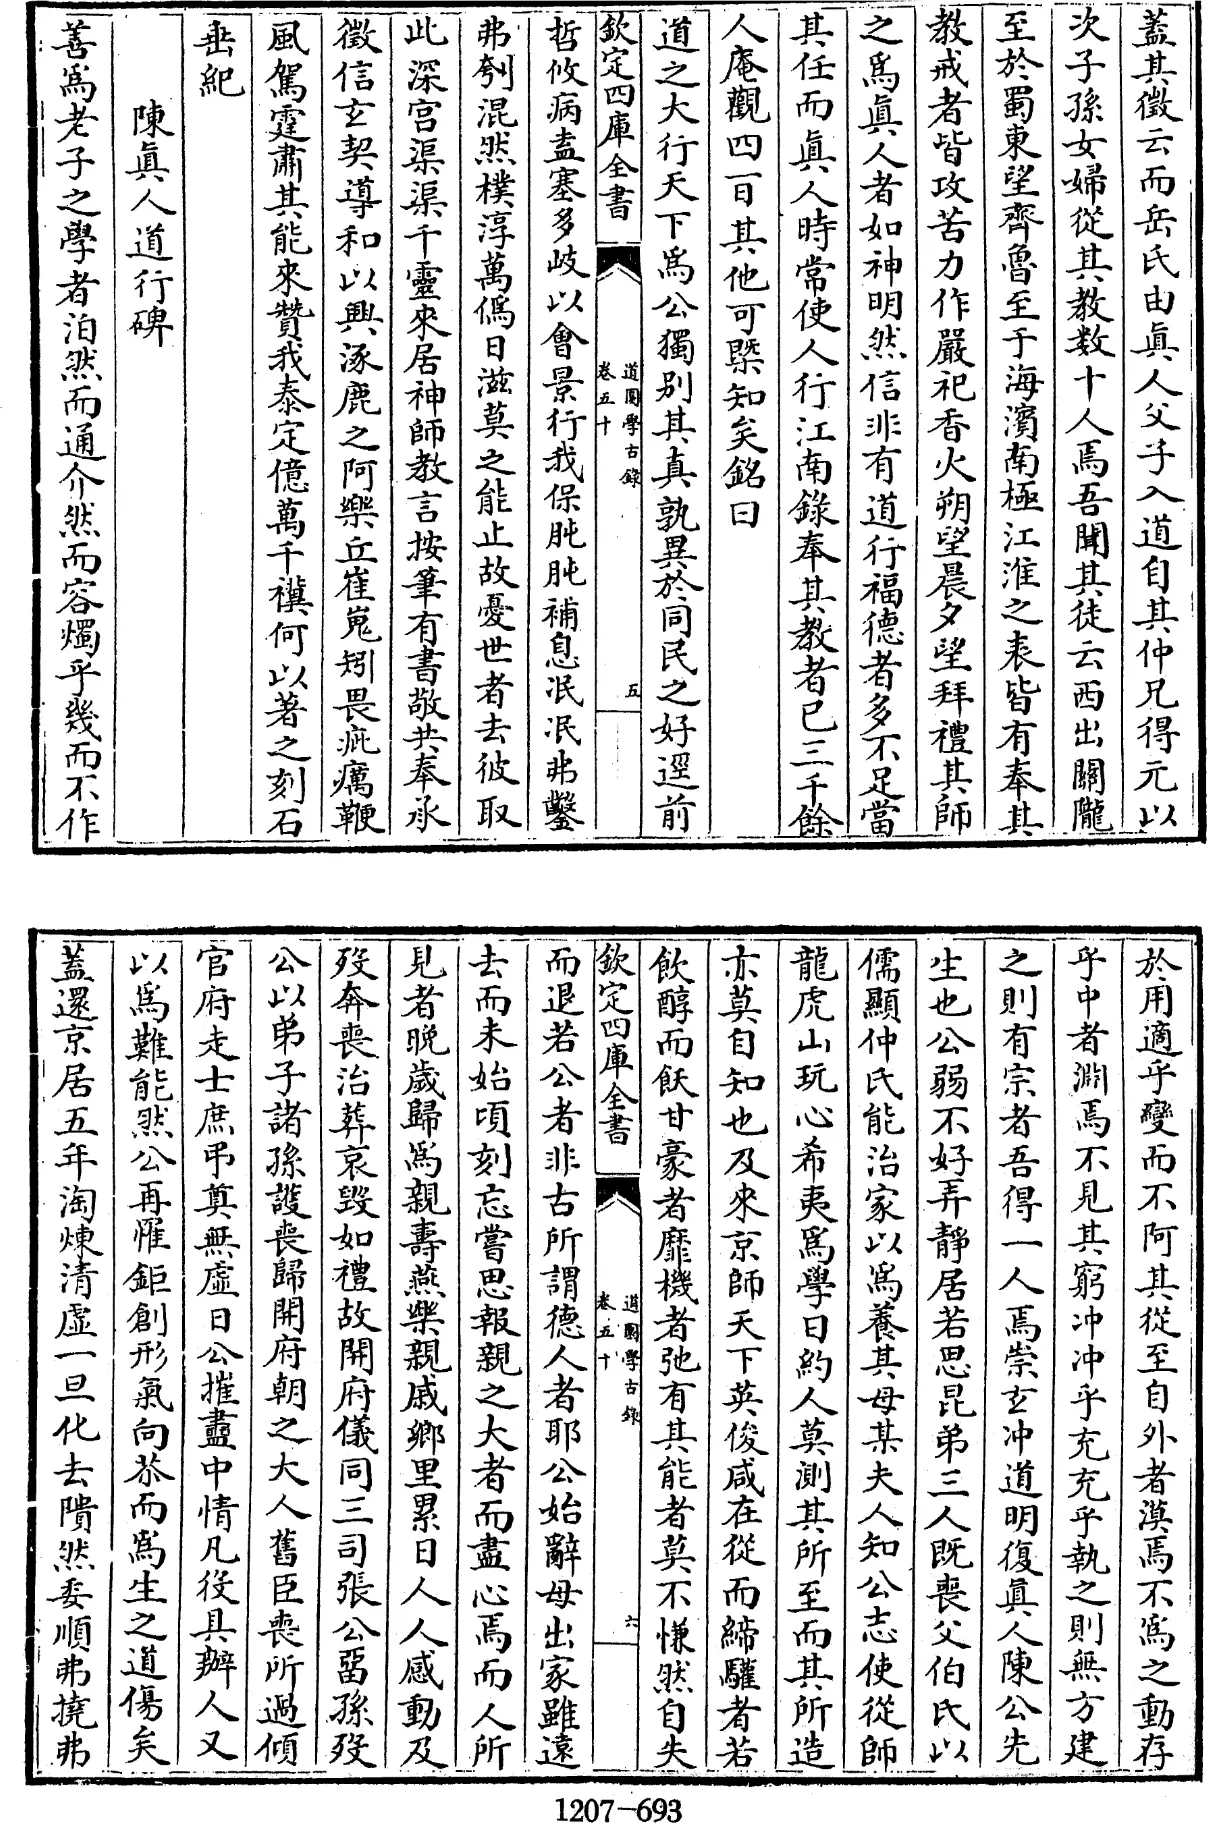 蓋其徵云而岳氏由眞人父子入道自其仲兄得元以
次子孫女婦從其教数十人焉吾聞其徒云西出關隴
至於蜀東望齊魯至于海濱南極江淮之表皆有奉其
教戒者皆攻苦力作嚴祀香火朔望晨夕望拜禮其師
之爲眞人者如神明然信非有道行福德者多不足當
其任而眞人時常使人行江南錄奉其教者已三千餘
人庵觀四百其他可槩知矣銘曰
道之大行天下爲公獨別其真孰異於同民之好逕前
欽定四庫全書
道園學古錄
卷五十
五
哲攸病盍塞多岐以會景行我保肫肫補息泯泯弗鑿
弗刳混然樸淳萬僞日滋莫之能止故憂世者去彼取
此深宮渠渠千靈來居神師教言按筆有書敬共奉承
徵信玄契導和以興涿鹿之阿樂丘崔嵬矧畏疵癘鞭
風駕霆肅其能來贊我泰定億萬千禩何以著之刻石
垂紀
陳眞人道行碑
善爲老子之學者泊然而通介然而容燭乎幾而不作
於用適乎變而不阿其從至自外者漠焉不爲之動存
乎中者淵焉不見其窮冲冲乎充充乎執之則無方建
之則有宗者吾得一人焉崇玄冲道明復眞人陳公先
生也公弱不好弄靜居若思昆弟三人既喪父伯氏以
儒顯仲氏能治家以爲養其母某夫人知公志使從師
龍虎山玩心希夷爲學日約人莫測其所至而其所造
亦莫自知也及來京師天下英俊咸在從而締驩者若
飲醇而飫甘豪者靡機者弛有其能者莫不慊然自失
欽定四庫全書
道園學古錄
卷五十
六
而退若公者非古所謂德人者耶公始辭母出家雖遠
去而未始頃刻忘嘗思報親之大者而盡心焉而人所
見者晚歲歸爲親壽燕樂親戚鄉里累日人人感動及
歿奔喪治葬哀毀如禮故開府儀同三司張公畱孫歿
公以弟子諸孫護喪歸開府朝之大人舊臣喪所過傾
官府走士庶弔奠無虛日公摧盡中情凡役具辦人又
以爲難能然公再罹鉅創形氣向苶而爲生之道傷矣
蓋還京居五年淘煉清虛一旦化去隤然委順弗撓弗
1207-693